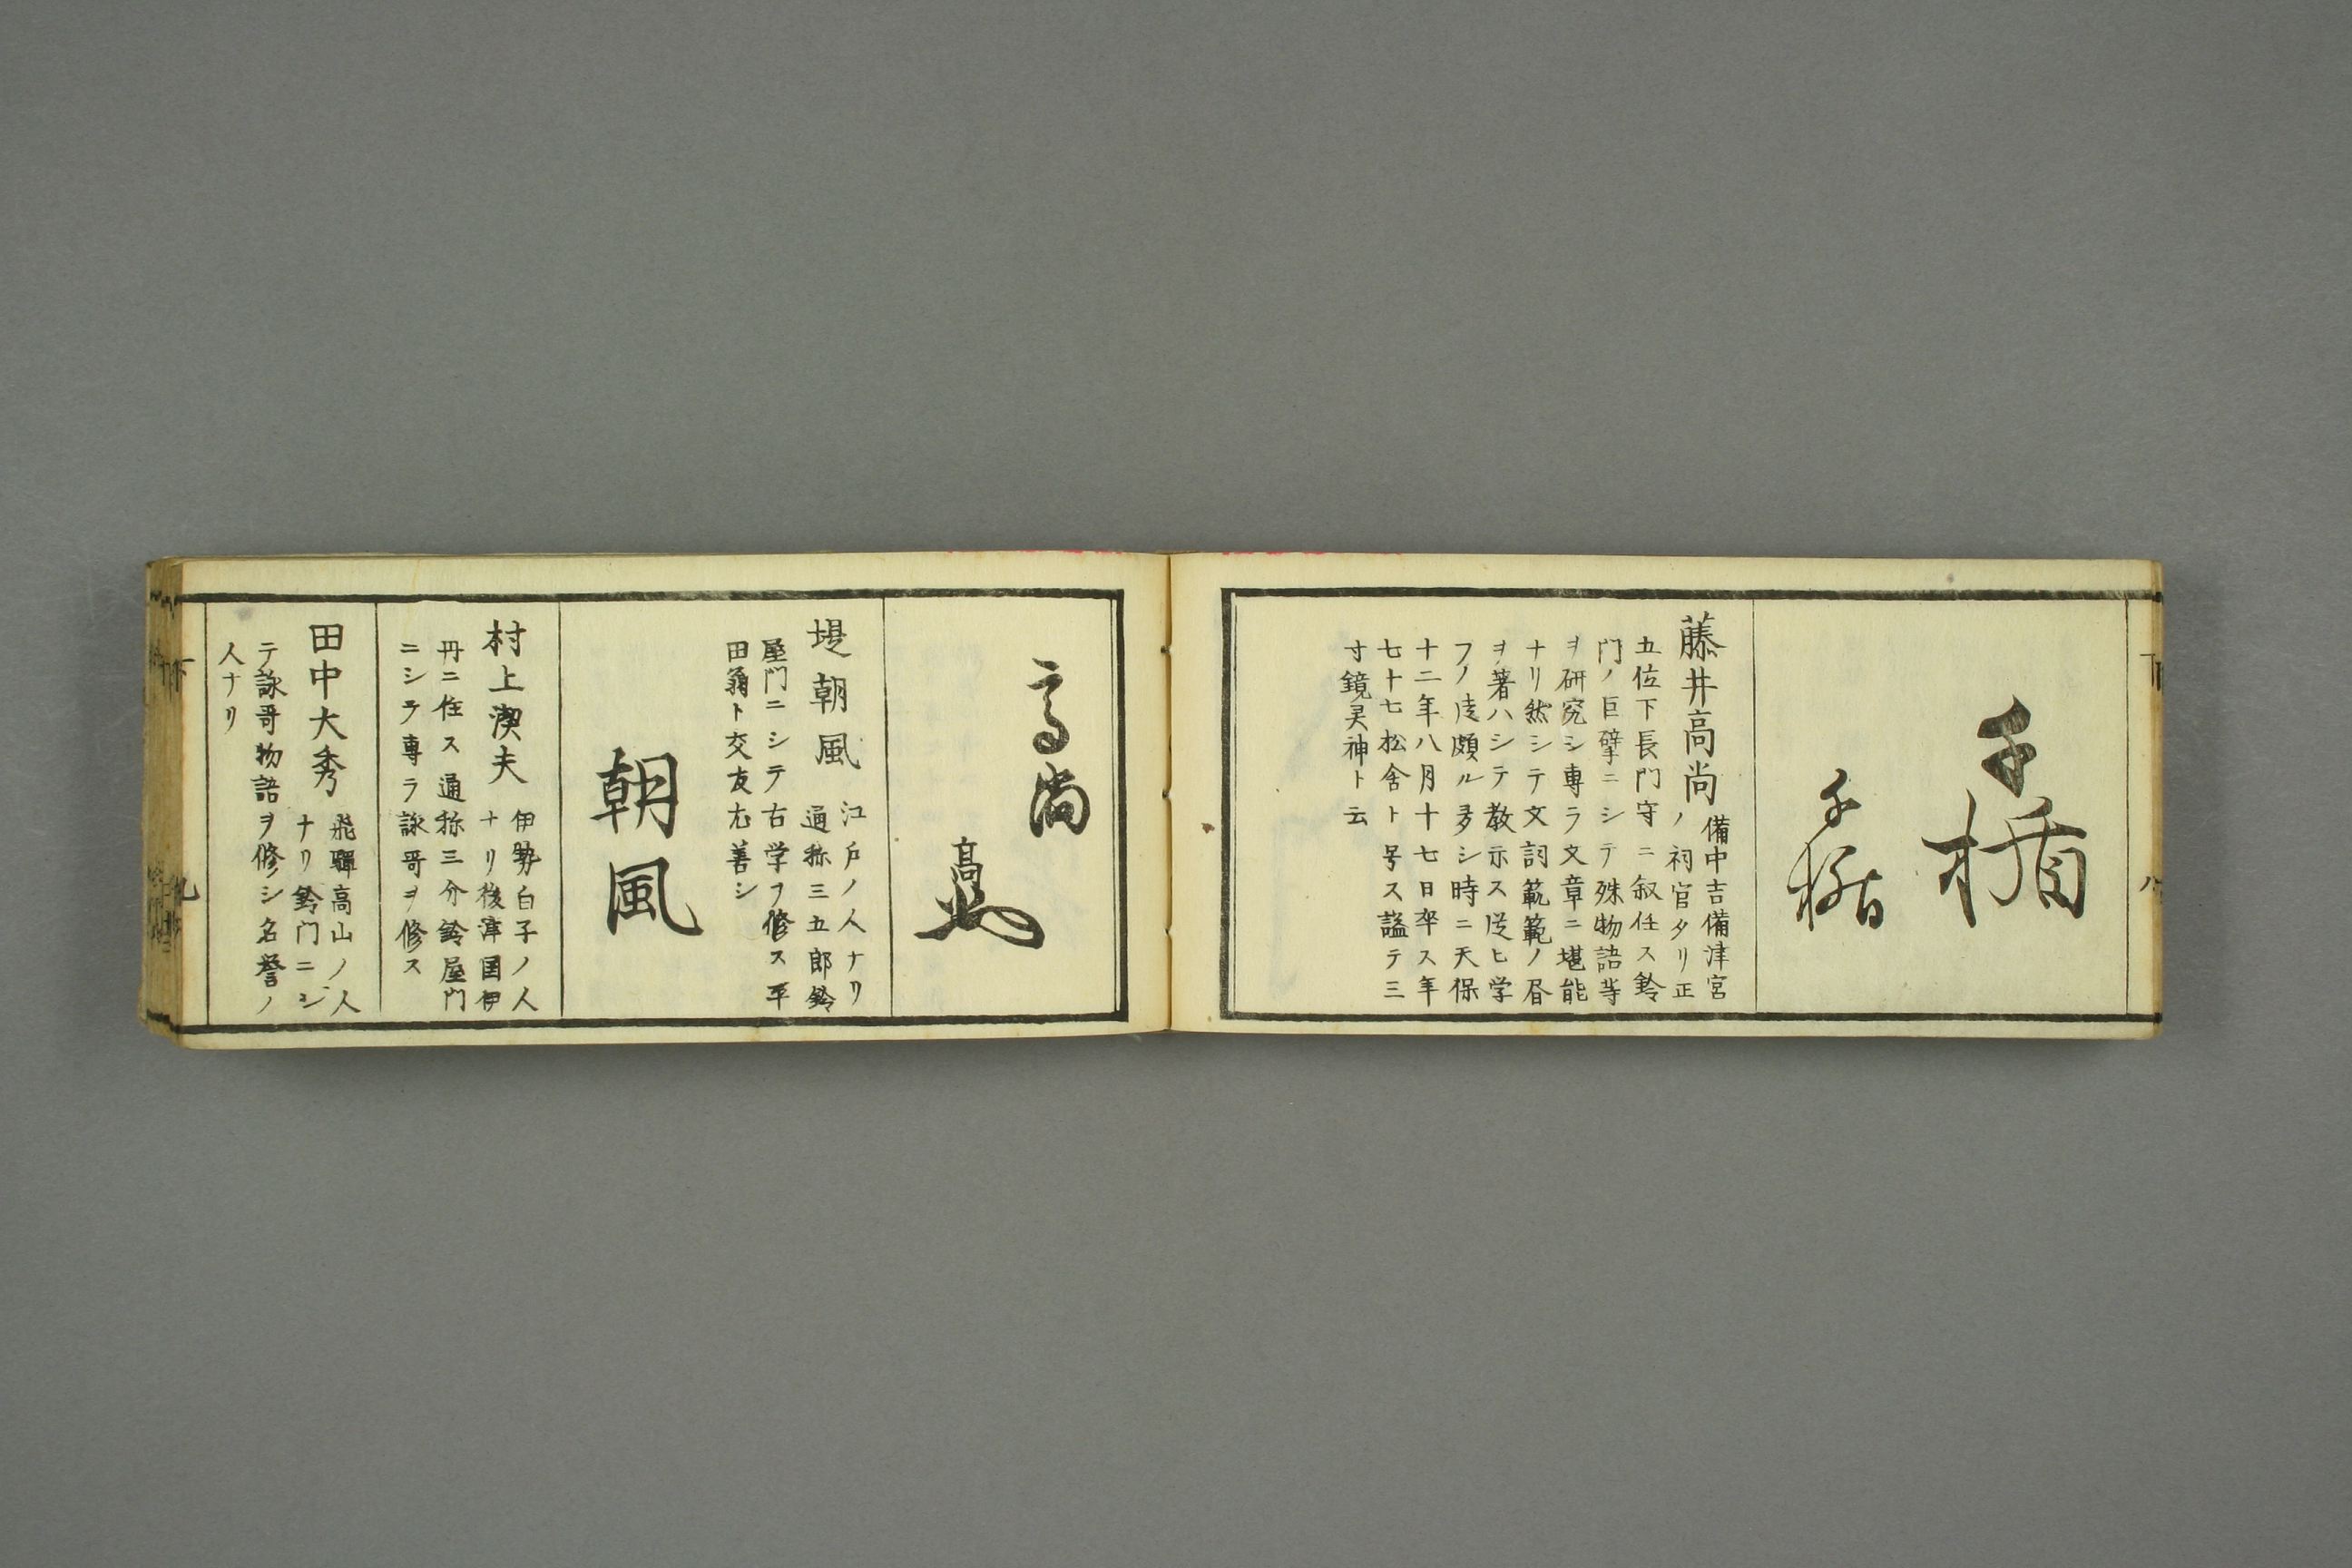 下
八
千楯
千楯
藤井高尚
備中吉備津宮
ノ祠官タリ正
五位下長門守ニ叙任ス鈴
門ノ巨擘ニシテ殊物語等
ヲ研究シ専ラ文章ニ堪能
ナリ然シテ文詞範範ノ昏
ヲ著ハシテ教示ス従ヒ学
フノ徒頗ル多シ時ニ天保
十二年八月十七日卒ス年
七十七松舎ト号ス謚テ三
寸鏡灵神ト云
高尚
高尚
堤朝風
江戸ノ人ナリ
通称三五郎鈴
屋門ニシテ古学ヲ修ス平
田翁ト交友尤善シ
朝風
村上潔夫
伊勢白子ノ人
ナリ後津国伊
丹ニ住ス通称三介鈴屋門
ニシテ専ラ詠哥ヲ修ス
田中大秀
飛驒高山ノ人
ナリ鈴门ニシ
テ詠哥物語ヲ修シ名誉ノ
人ナリ
下
九